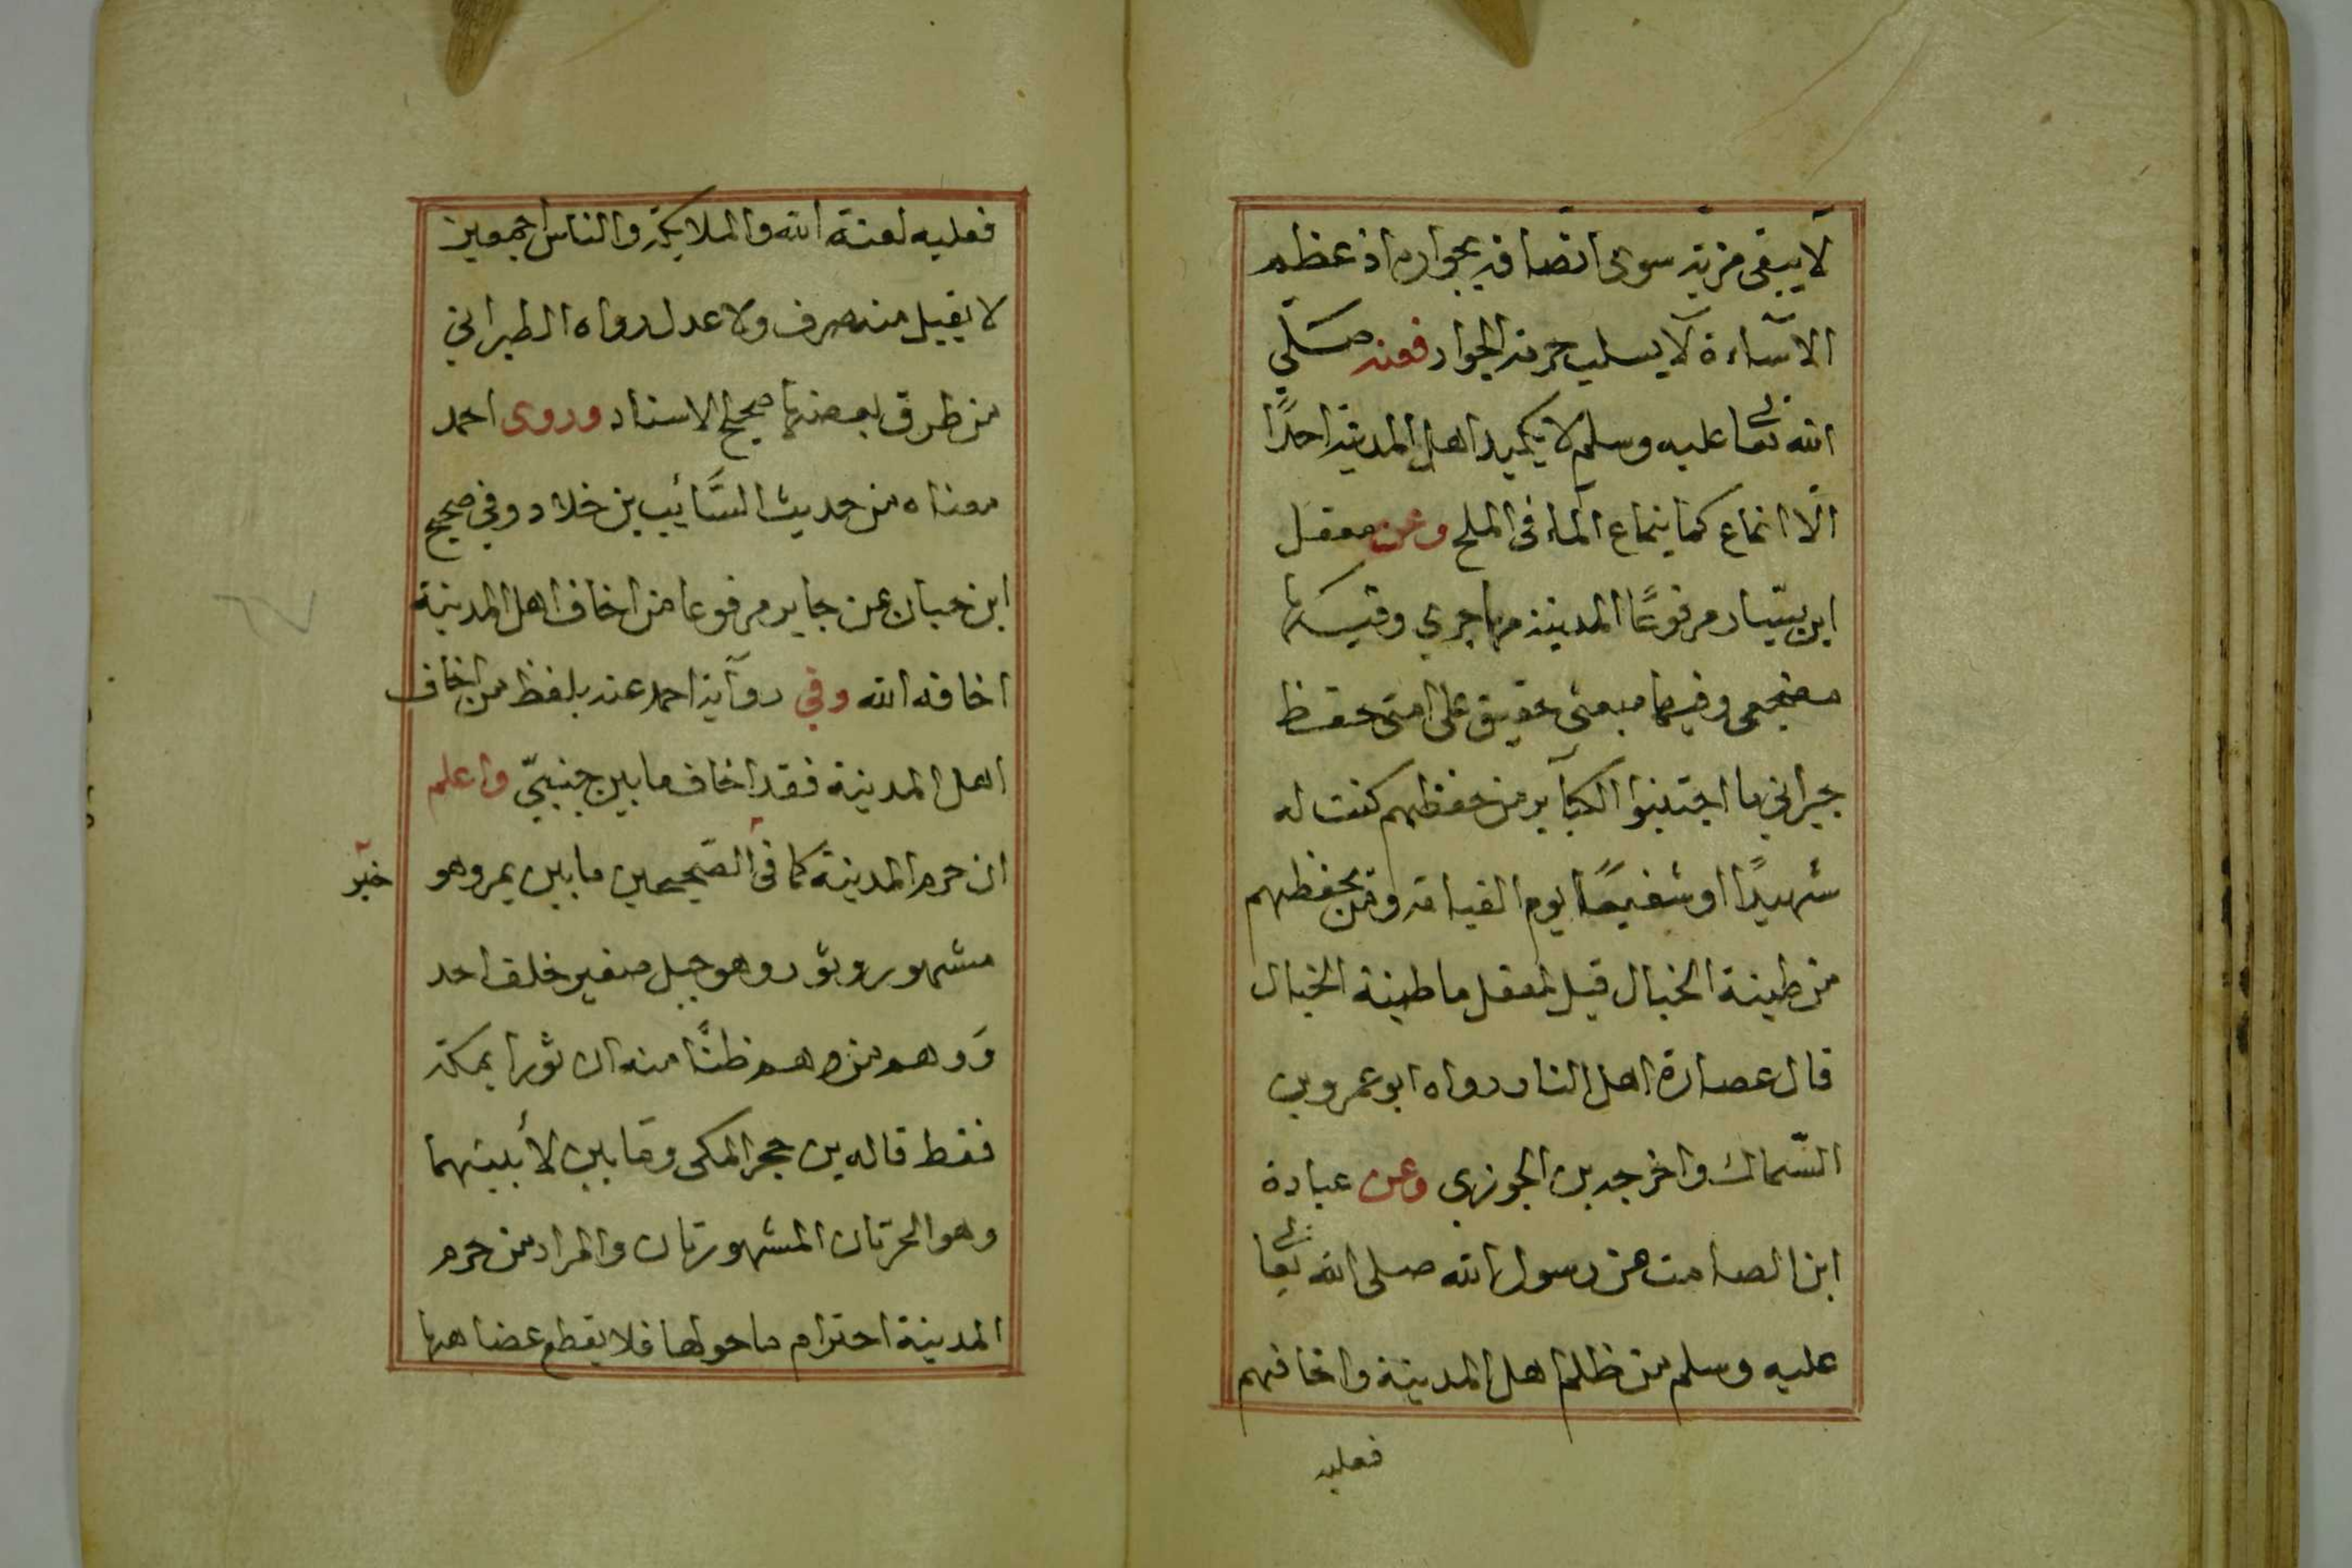 لا يبقى مزية سوى اتصافه بجواره اذ عظم
الاساءة لا يسلب حرمة الجوار فعنه صلى
الله تعالى عليه وسلم لا يكيد اهل المدينة احدًا
الّا انماع كما ينماع الماء فى الملح وعن معقل
ابن يسار مرفوعًا المدينة مهاجري وفيها
مضجعى وفيها مبعثى حقيق على امتى حفظ
جيراني ما اجتنبوا الكبآير من حفظهم كنت له
شهيدًا او شفيعًا يوم القيامة ومن يحفظهم
من طينة الخبال قيل لمعقل ما طينة الخبال
قال عصارة اهل النار رواه ابو عمرو بن
السّماك واخرجه بن الجوزي وعن عبادة
ابن الصامت عن رسول الله صلى الله تعالى
عليه وسلم من ظلم اهل المدينة واخافهم
فعليه
فعليه لعنة الله والملايكة والناس اجمعين
لا يقبل منه صرف ولا عدل رواه الطبراني
من طرق بعضها صحيح الاسناد وروى احمد
معناه من حديث السَّائب بن خلاد وفي صحيح
ابن حبان عن جابر مرفوعا من اخاف اهل المدينة
اخافه الله وفي روآية احمد عنه بلفظ من اخاف
اهل المدينة فقد اخاف ما بين جنبيّ واعلم
ان حرم المدينة كما فى الصّحيحين ما بين عير وهو
خبر
مشهور وثور وهو جبل صغير خلف احد
وَوهم من وهم ظنًّا منه ان ثورا بمكة
فقط قاله بن حجر المكى وما بين لأبتيهما
وهو الحرتان المشهورتان والمراد من حرم
المدينة احترام ما حولها فلا يقطع عضاهها